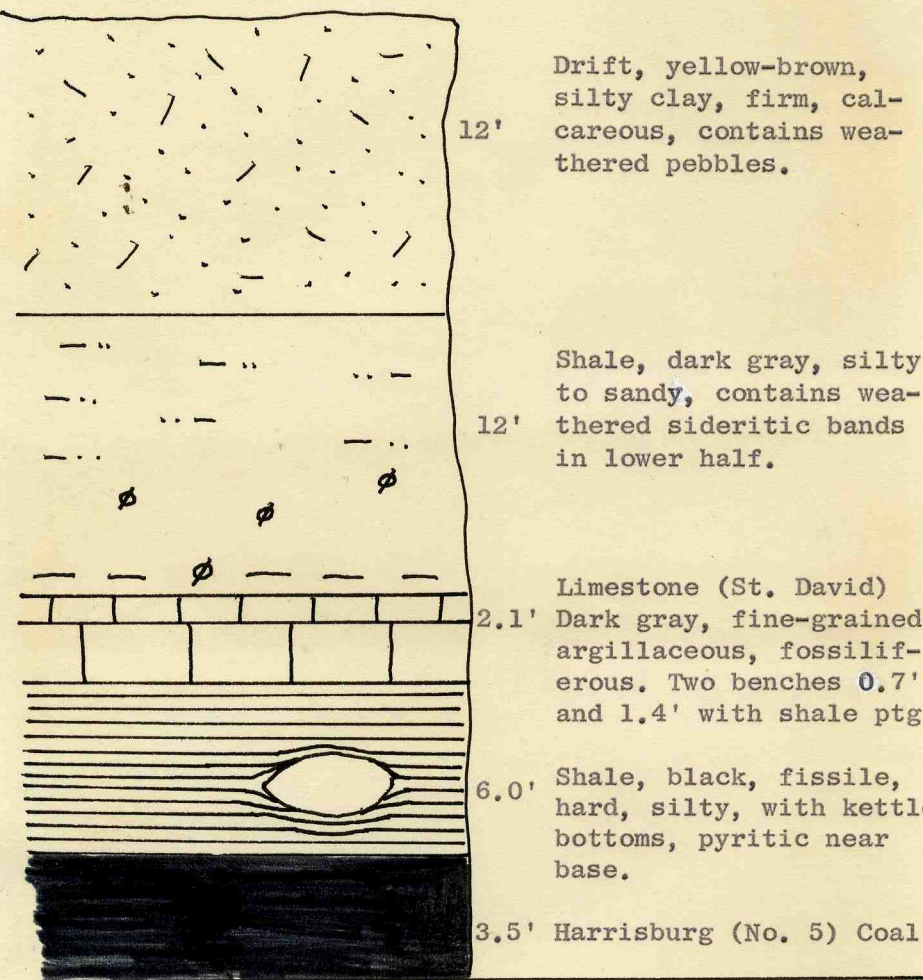 12'
Drift, yellow-brown,
silty clay, firm, cal-
careous, contains wea-
thered pebbles.
12'
Shale, dark gray, silty
to sandy, contains wea-
thered sideritic bands
in lower half.
2.1'
Limestone (St. David)
Dark gray, fine-grained
argillaceous, fossilif-
erous. Two benches 0.7'
and 1.4' with shale ptg
6.0'
Shale, black, fissile,
hard, silty, with kettl
bottoms, pyritic near
base.
3.5' Harrisburg (No. 5) Coal